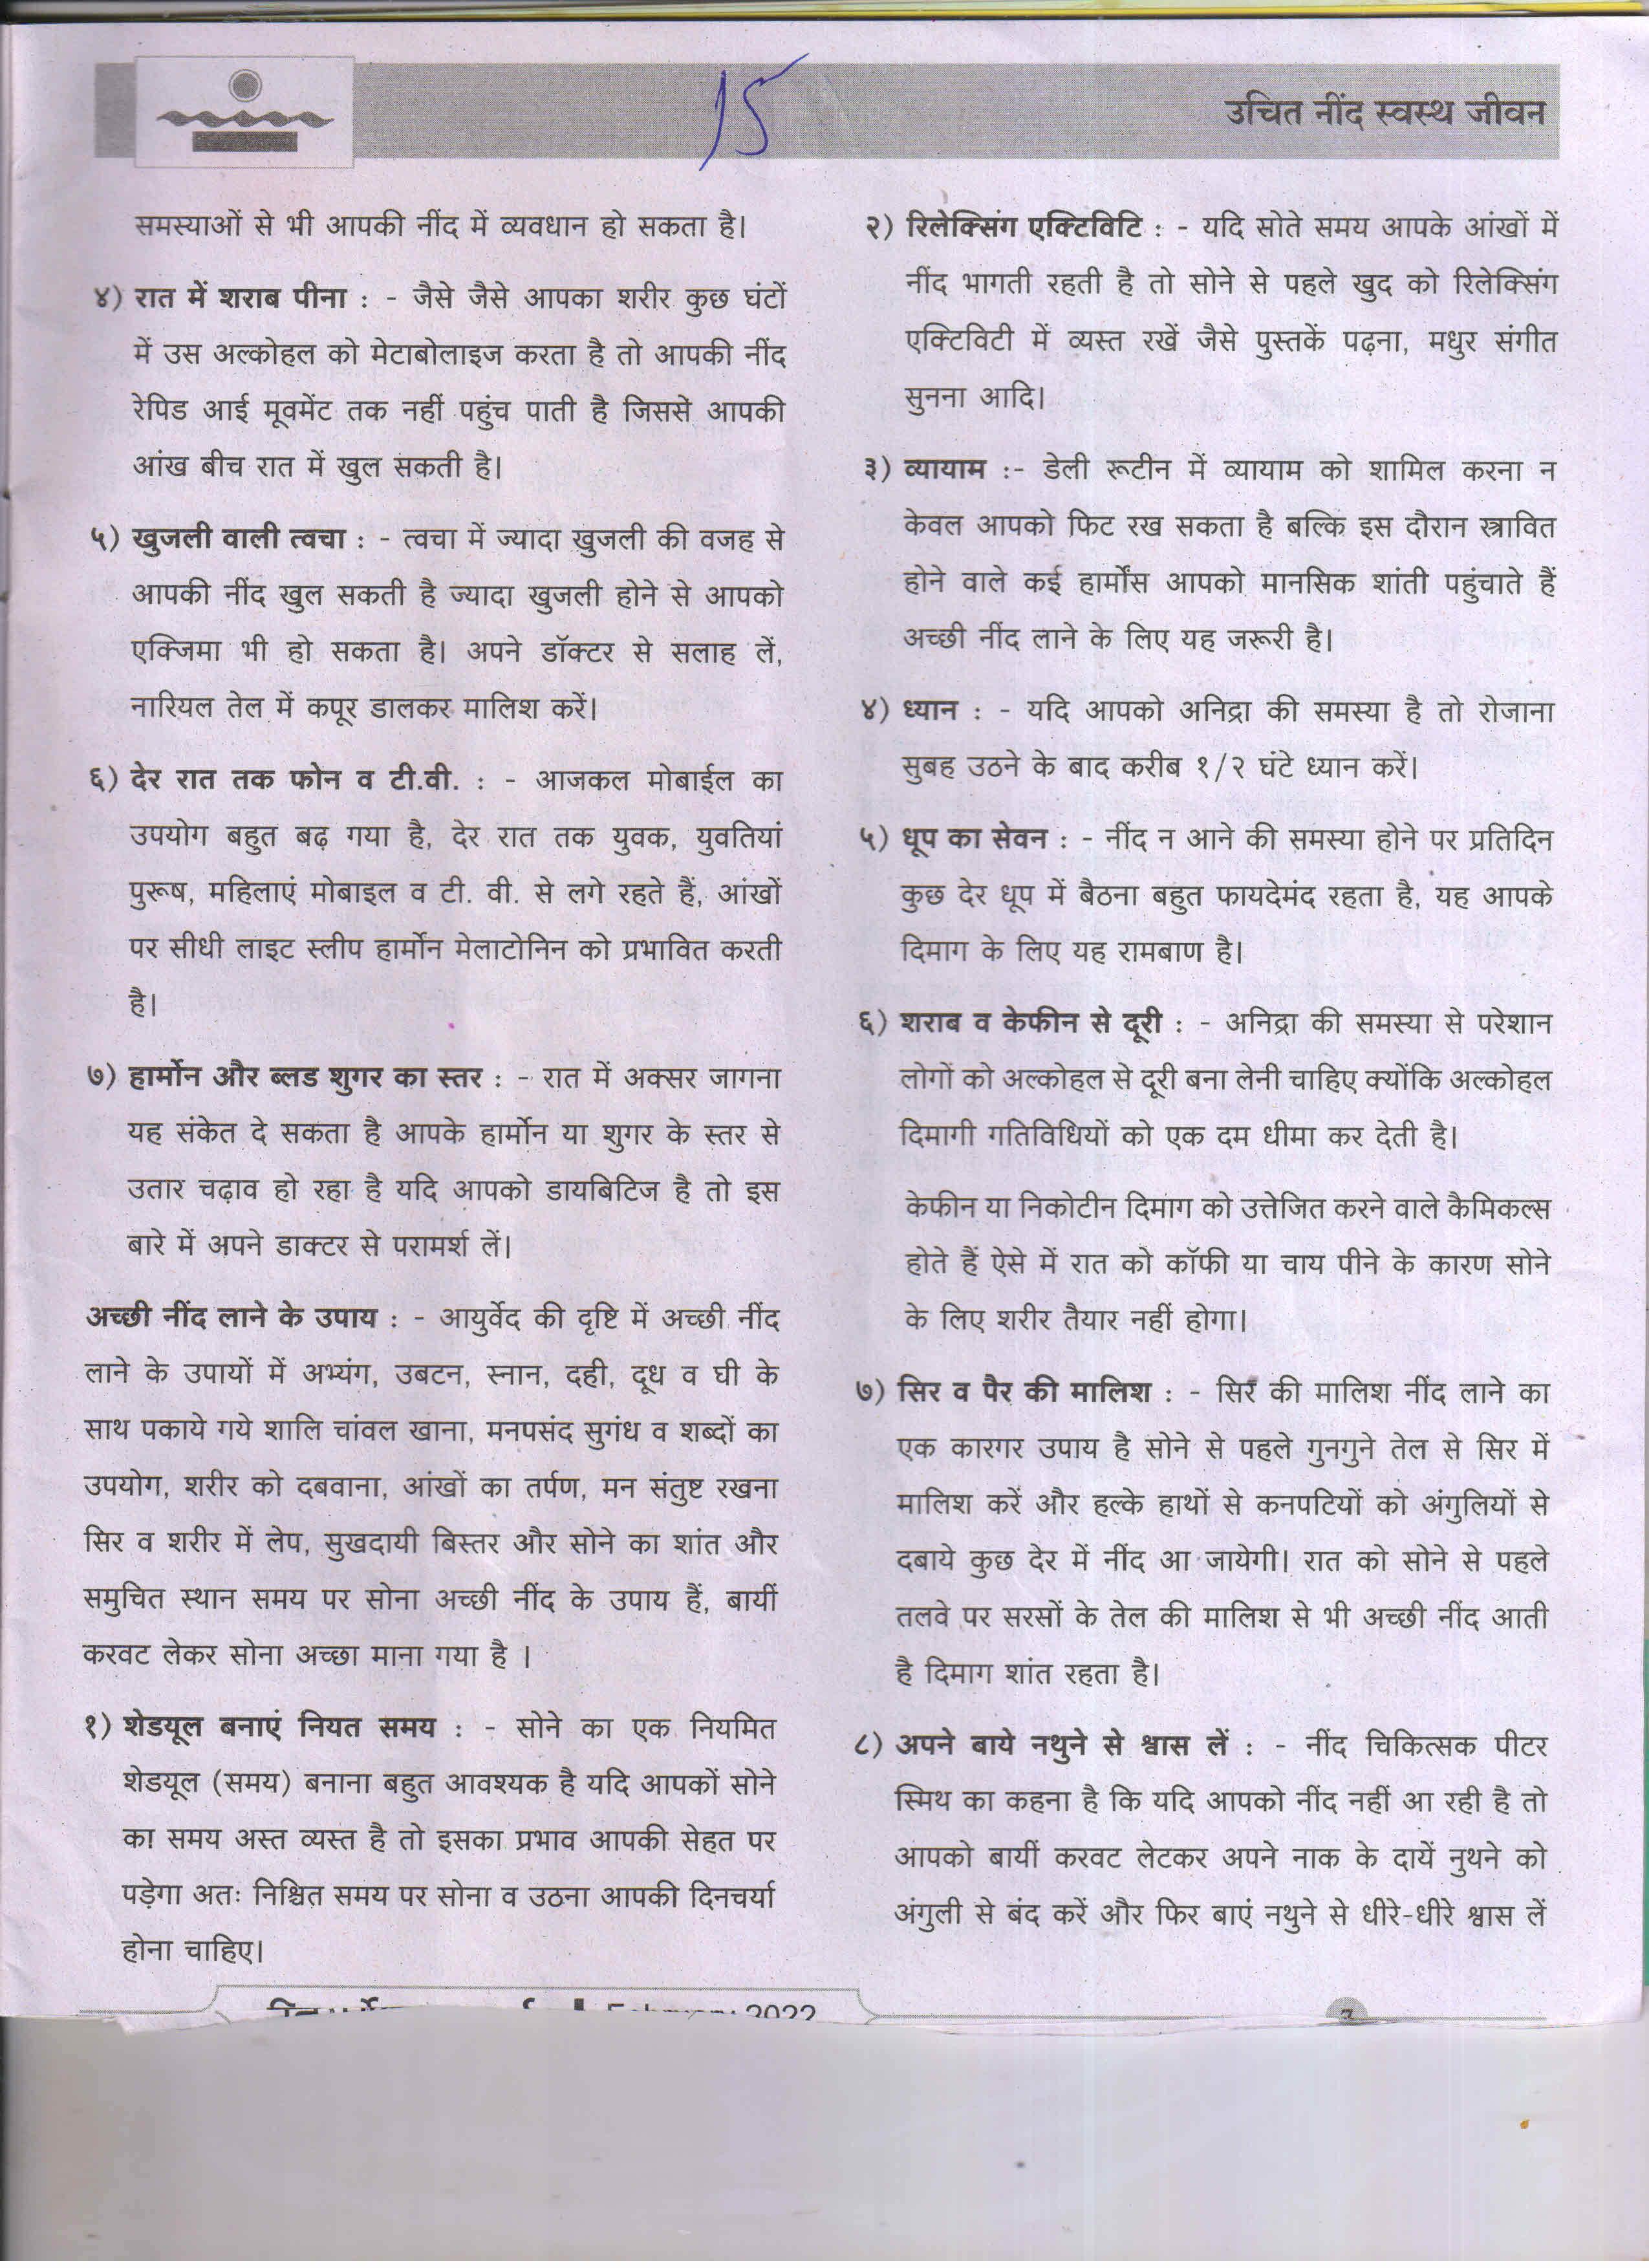 15
उचित नींद स्वस्थ जीवन
समस्याओं से भी आपकी नींद में व्यवधान हो सकता है।
४) रात में शराब पीना : - जैसे जैसे आपका शरीर कुछ घंटों
में उस अल्कोहल को मेटाबोलाइज करता है तो आपकी नींद
रेपिड आई मूवमेंट तक नहीं पहुंच पाती है जिससे आपकी
आंख बीच रात में खुल सकती है।
५) खुजली वाली त्वचा : - त्वचा में ज्यादा खुजली की वजह से
आपकी नींद खुल सकती है ज्यादा खुजली होने से आपको
एक्जिमा भी हो सकता है। अपने डॉक्टर से सलाह लें,
नारियल तेल में कपूर डालकर मालिश करें।
६) देर रात तक फोन व टी.वी. : - आजकल मोबाईल का
उपयोग बहुत बढ़ गया है, देर रात तक युवक, युवतियां
पुरूष, महिलाएं मोबाइल व टी. वी. से लगे रहते हैं, आंखों
पर सीधी लाइट स्लीप हार्मोन मेलाटोनिन को प्रभावित करती
है।
७) हार्मोन और ब्लड शुगर का स्तर : - रात में अक्सर जागना
यह संकेत दे सकता है आपके हार्मोन या शुगर के स्तर से
उतार चढ़ाव हो रहा है यदि आपको डायबिटिज है तो इस
बारे में अपने डाक्टर से परामर्श लें।
अच्छी नींद लाने के उपाय : - आयुर्वेद की दृष्टि में अच्छी नींद
लाने के उपायों में अभ्यंग, उबटन, स्नान, दही, दूध व घी के
साथ पकाये गये शालि चांवल खाना, मनपसंद सुगंध व शब्दों का
उपयोग, शरीर को दबवाना, आंखों का तर्पण, मन संतुष्ट रखना
सिर व शरीर में लेप, सुखदायी बिस्तर और सोने का शांत और
समुचित स्थान समय पर सोना अच्छी नींद के उपाय हैं, बायीं
करवट लेकर सोना अच्छा माना गया है ।
१) शेडयूल बनाएं नियत समय : - सोने का एक नियमित
शेडयूल (समय) बनाना बहुत आवश्यक है यदि आपकों सोने
का समय अस्त व्यस्त है तो इसका प्रभाव आपकी सेहत पर
पड़ेगा अतः निश्चित समय पर सोना व उठना आपकी दिनचर्या
होना चाहिए।
२) रिलेक्सिंग एक्टिविटि : - यदि सोते समय आपके आंखों में
नींद भागती रहती है तो सोने से पहले खुद को रिलेक्सिंग
एक्टिविटी में व्यस्त रखें जैसे पुस्तकें पढ़ना, मधुर संगीत
सुनना आदि।
३) व्यायाम :- डेली रूटीन में व्यायाम को शामिल करना न
केवल आपको फिट रख सकता है बल्कि इस दौरान स्त्रावित
होने वाले कई हार्मोंस आपको मानसिक शांती पहुंचाते हैं
अच्छी नींद लाने के लिए यह जरूरी है।
४) ध्यान : - यदि आपको अनिद्रा की समस्या है तो रोजाना
सुबह उठने के बाद करीब १/२ घंटे ध्यान करें।
५) धूप का सेवन : - नींद न आने की समस्या होने पर प्रतिदिन
कुछ देर धूप में बैठना बहुत फायदेमंद रहता है, यह आपके
दिमाग के लिए यह रामबाण है।
६) शराब व केफीन से दूरी : - अनिद्रा की समस्या से परेशान
लोगों को अल्कोहल से दूरी बना लेनी चाहिए क्योंकि अल्कोहल
दिमागी गतिविधियों को एक दम धीमा कर देती है।
केफीन या निकोटीन दिमाग को उत्तेजित करने वाले कैमिकल्स
होते हैं ऐसे में रात को कॉफी या चाय पीने के कारण सोने
के लिए शरीर तैयार नहीं होगा।
७) सिर व पैर की मालिश : - सिर की मालिश नींद लाने का
एक कारगर उपाय है सोने से पहले गुनगुने तेल से सिर में
मालिश करें और हल्के हाथों से कनपटियों को अंगुलियों से
दबाये कुछ देर में नींद आ जायेगी। रात को सोने से पहले
तलवे पर सरसों के तेल की मालिश से भी अच्छी नींद आती
है दिमाग शांत रहता है।
८) अपने बाये नथुने से श्वास लें : - नींद चिकित्सक पीटर
स्मिथ का कहना है कि यदि आपको नींद नहीं आ रही है तो
आपको बायीं करवट लेटकर अपने नाक के दायें नुथने को
अंगुली से बंद करें और फिर बाएं नथुने से धीरे-धीरे श्वास लें
February 2022